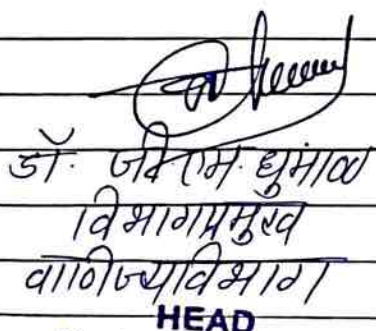 डॉ. जे. एम. धुमाळ
विभागप्रमुख
वाणिज्य विभाग
HEAD